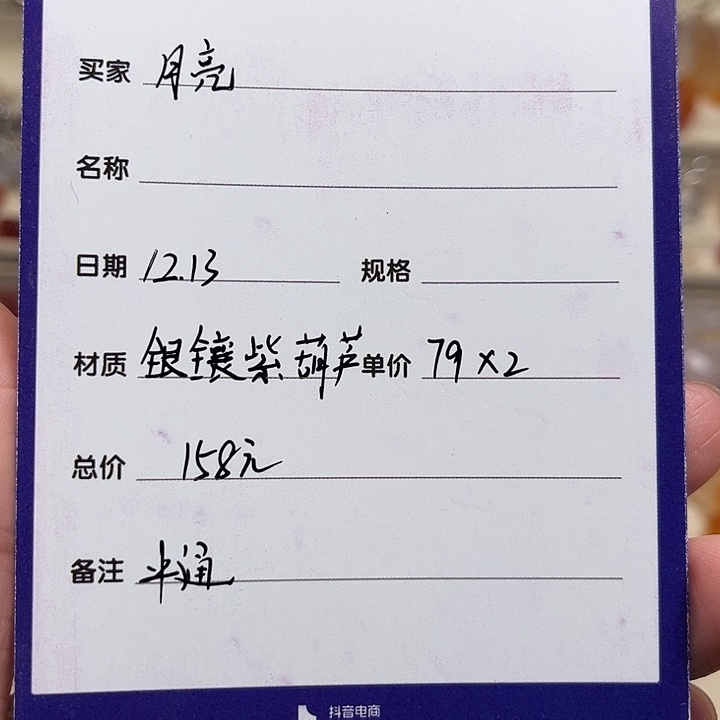 买家 月亮
名称
日期 12.13 规格
材质 银镶紫葫芦 单价 79×2
总价 158元
备注 半通
抖音电商